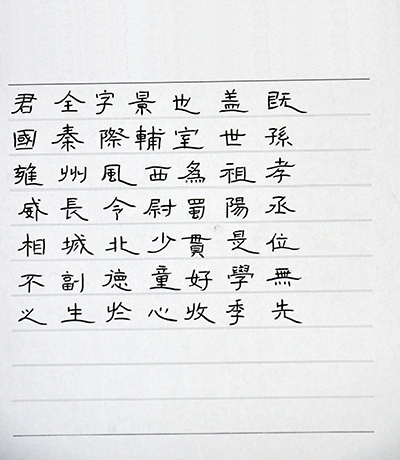 君全字景也盖既
國秦際輔室世孫
雍州風西為祖孝
威長令尉蜀陽丞
相城北少貫是位
不副德童好學無
必生於心收季先